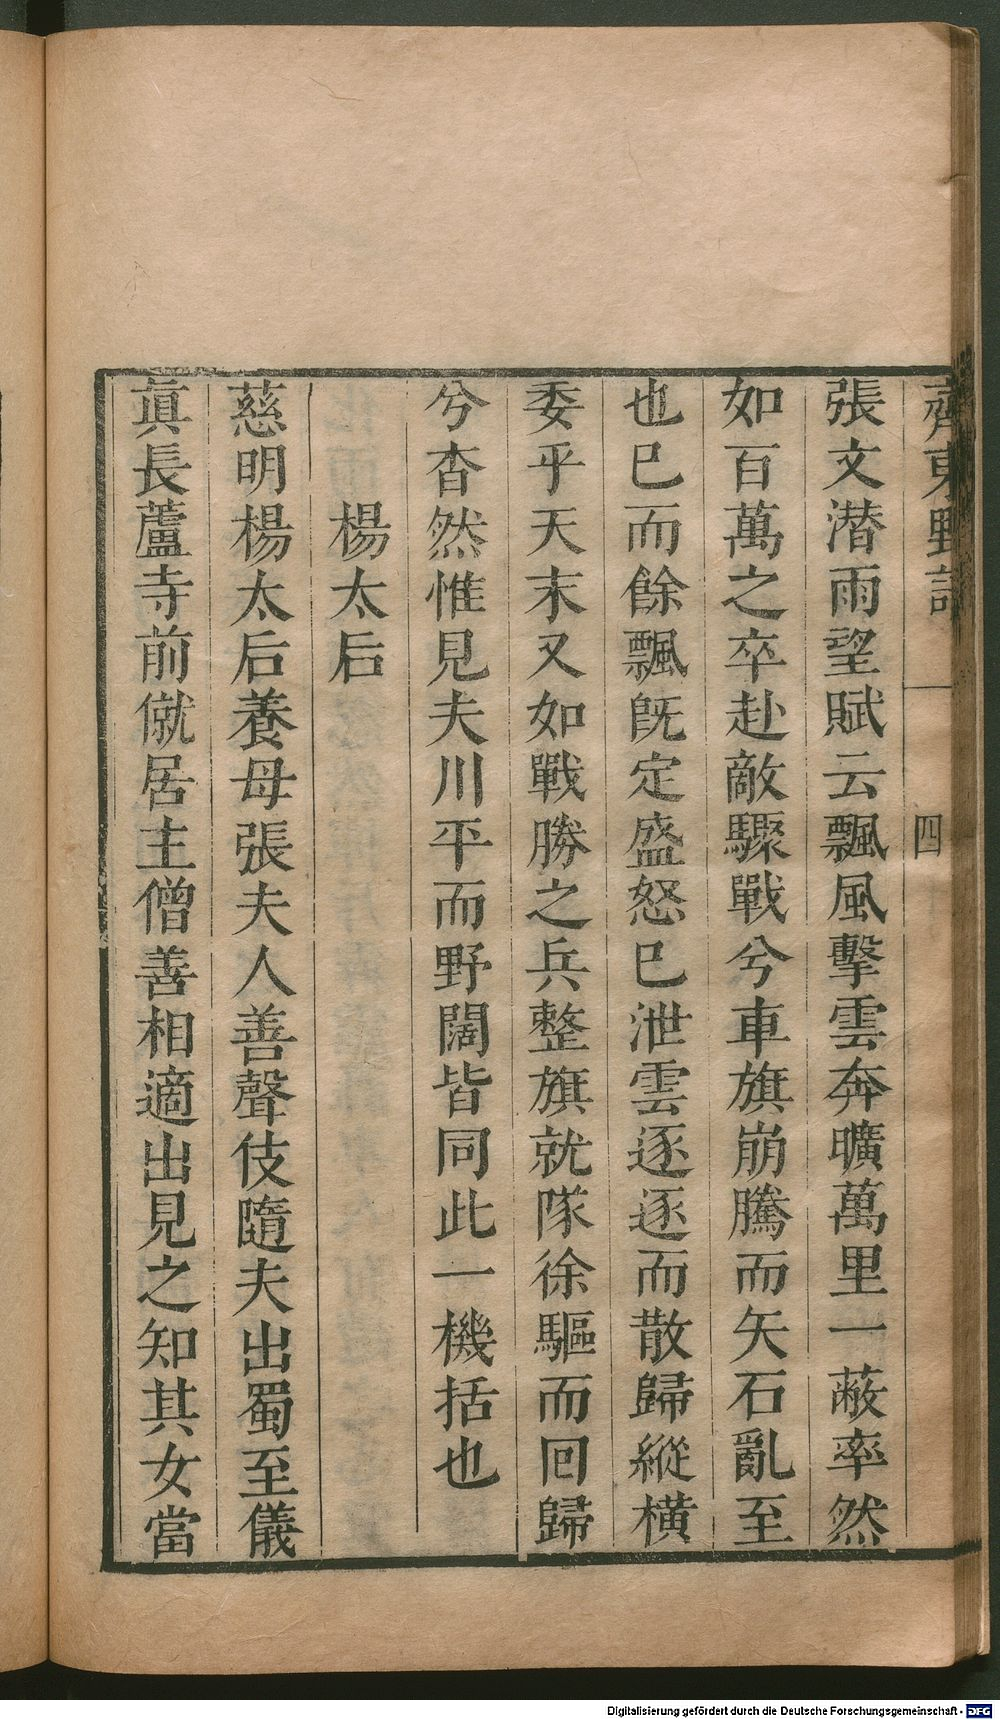 齊東野語
四
張文潜雨望賦云飄風擊雲奔曠萬里一蔽率然
如百萬之卒赴敵驟戰兮車旗崩騰而矢石亂至
也已而餘飄旣定盛怒已泄雲逐逐而散歸縱橫
委乎天末又如戰勝之兵整旗就隊徐驅而回歸
兮杳然惟見夫川平而野闊皆同此一機括也
楊太后
慈明楊太后養母張夫人善聲伎隨夫出蜀至儀
眞長蘆寺前僦居主僧善相適出見之知其女當
Digitalisierung gefördert durch die Deutsche Forschungsgemeinschaft - DFG